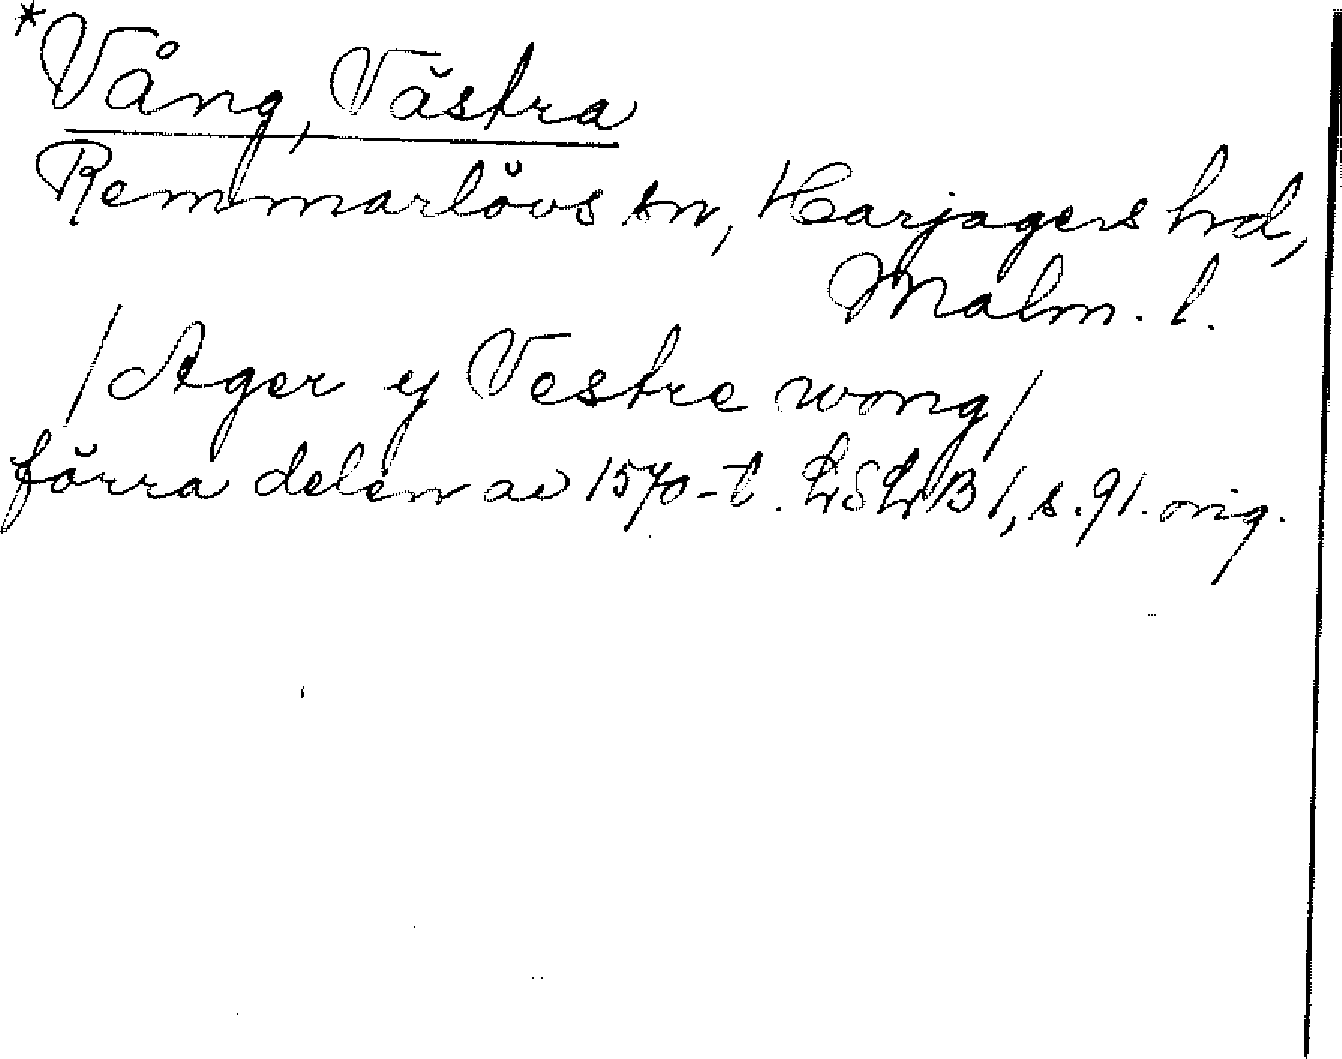 *Vång, Västra
Remmarlövs sn, Harjagers hd,
Malm. l.
/Ager ej Vestre wong/
förra delen av 1570-t. LSLB 1, s. 91. orig.